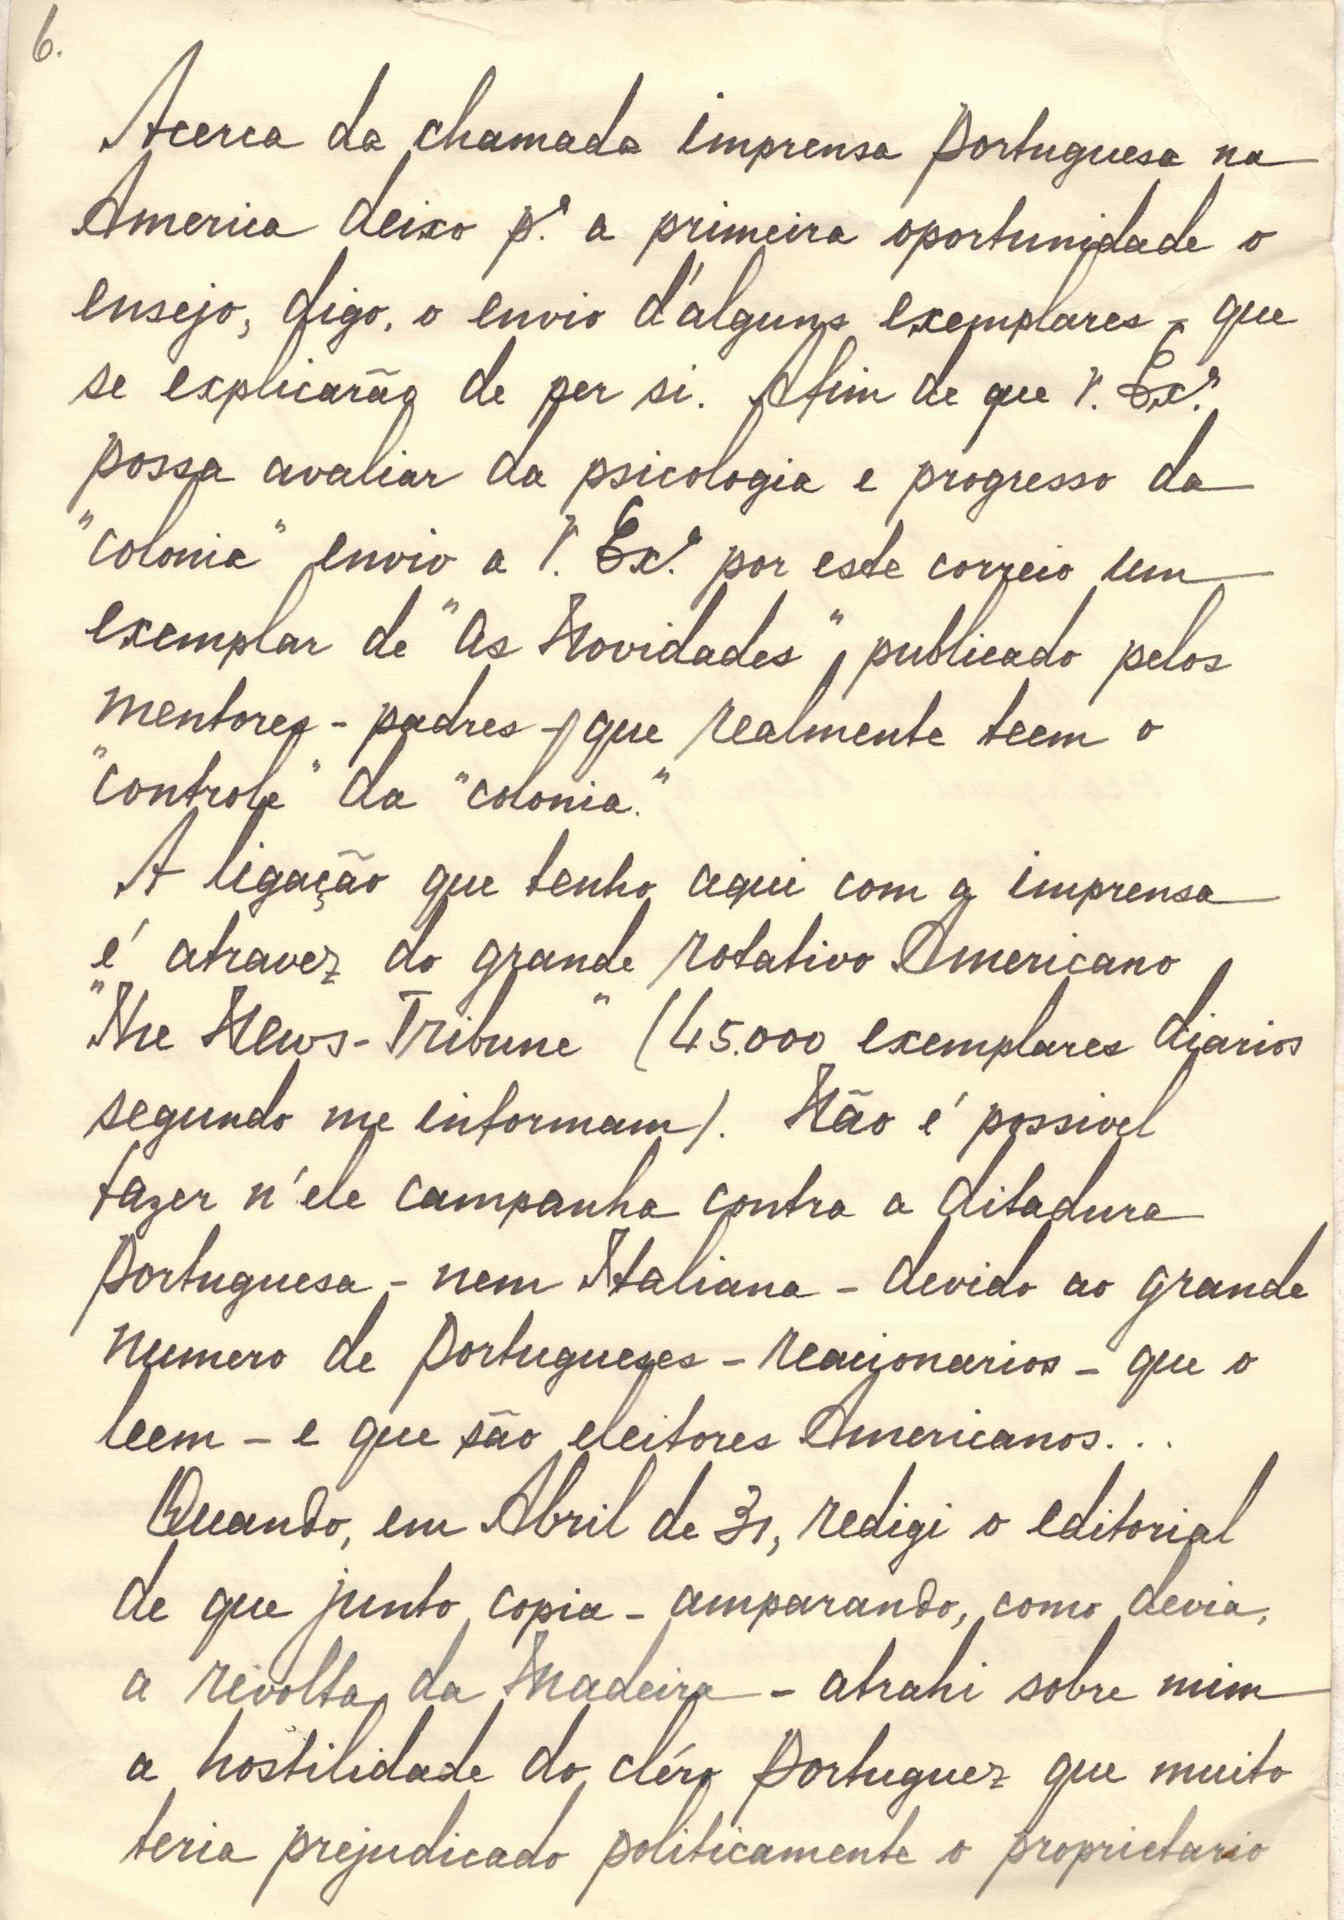 6.
Acerca da chamada imprensa portuguesa na
America deixo p.ª a primeira oportunidade o
ensejo, digo, o envio d'alguns exemplares - que
se explicarão de per si. Afim de que V. Ex.ª
possa avaliar da psicologia e progresso da
"colonia" envio a V. Ex.ª por este correio um
exemplar de "As Novidades", publicado pelos
mentores - padres - que realmente teem o
"controle" da "colonia."
A ligação que tenho aqui com a imprensa
é atravez do grande rotativo Americano
"The News-Tribune" (45.000 exemplares diarios
segundo me informam). Não é possivel
fazer n'ele campanha contra a ditadura
portuguesa - nem Italiana - devido ao grande
numero de portugueses - reacionarios - que o
leem - e que são eleitores Americanos...
Quando, em Abril de 31, redigi o editorial
de que junto copia - amparando, como devia,
a revolta da Madeira - atrahi sobre mim
a hostilidade do cléro portuguez que muito
teria prejudicado politicamente o proprietario